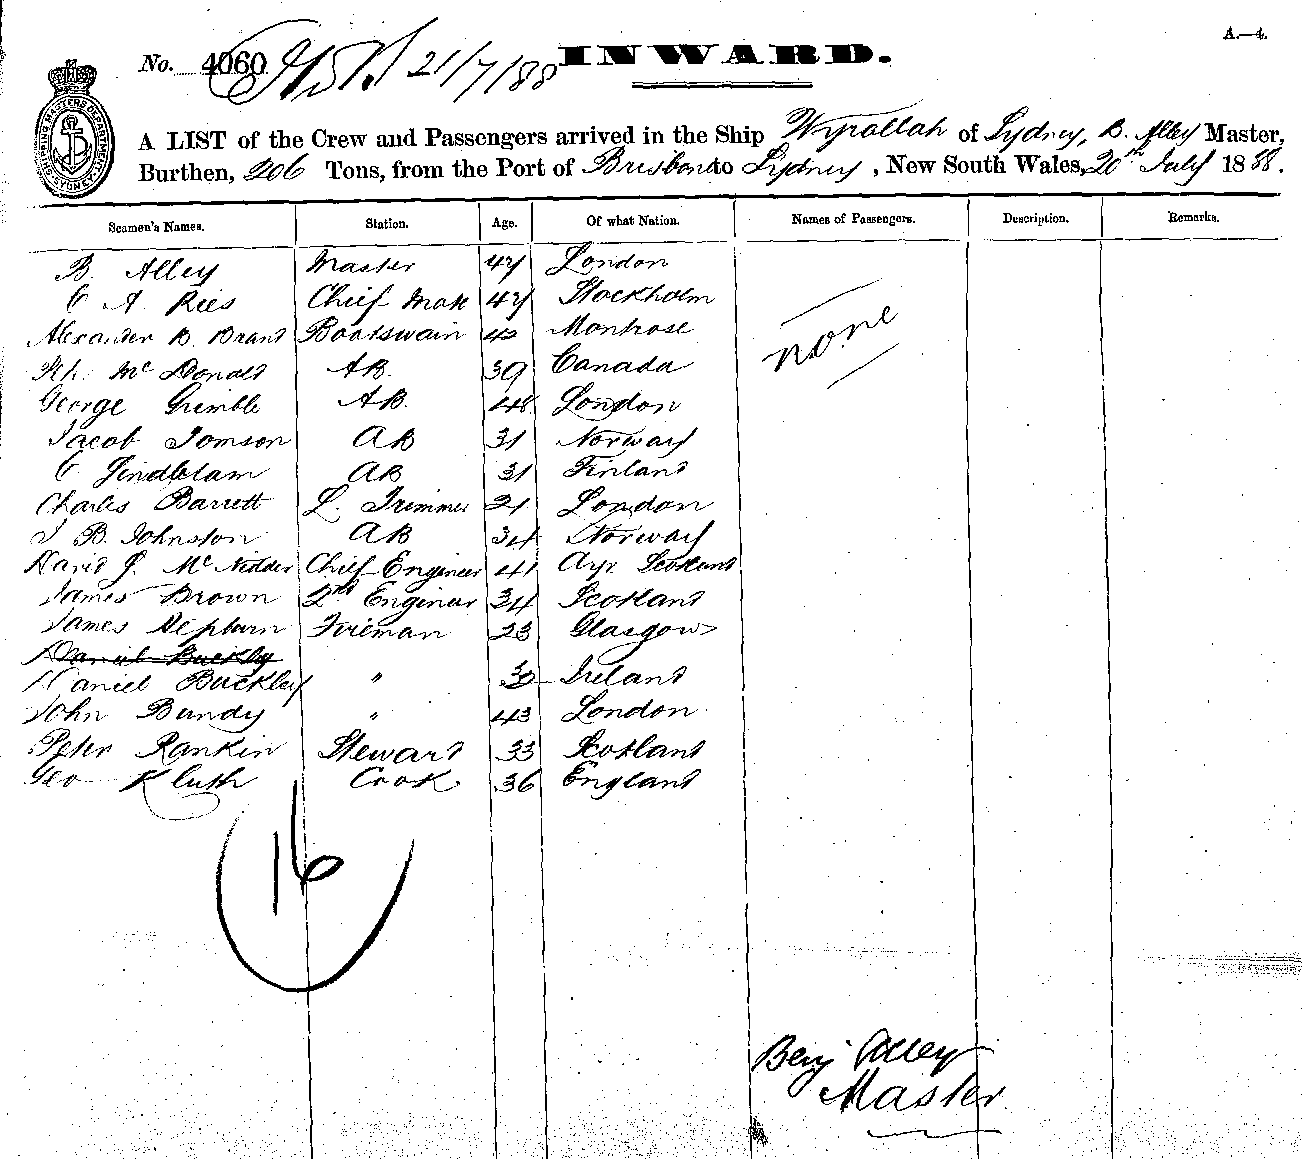 A.—4.
No. 4060 21/7/88 INWARD.
SHIPPING MASTERS DEPARTMENT SYDNEY
A LIST of the Crew and Passengers arrived in the Ship Wyrallah of Sydney, B. Alley Master,
Burthen, 206 Tons, from the Port of Brisbane to Sydney, New South Wales, 20th July 1888.
Seamen's Names. Station. Age. Of what Nation. Names of Passengers. Description. Remarks.
B. Alley Master 47 London
C A Ries Chief Mate 47 Stockholm
Alexander B. Brand Boatswain 42 Montrose
none
Mc Donald AB. 39 Canada
George Grimble AB. 48 London
Jacob Tomson AB 31 Norway
C Lindblam AB 31 Finland
Charles Barrett L. Trimmer 21 London
J B Johnston AB 34 Norway
David J. Mc Nidder Chief Engineer 41 Ayr Scotland
James Brown 2nd Engineer 34 Scotland
James Hepburn Fireman 23 Glasgow
Daniel Buckley
Daniel Buckley " 32 Ireland
John Bundy " 43 London
Peter Rankin Steward 33 Scotland
Geo Kluth Cook 36 England
16
Benj Alley
Master